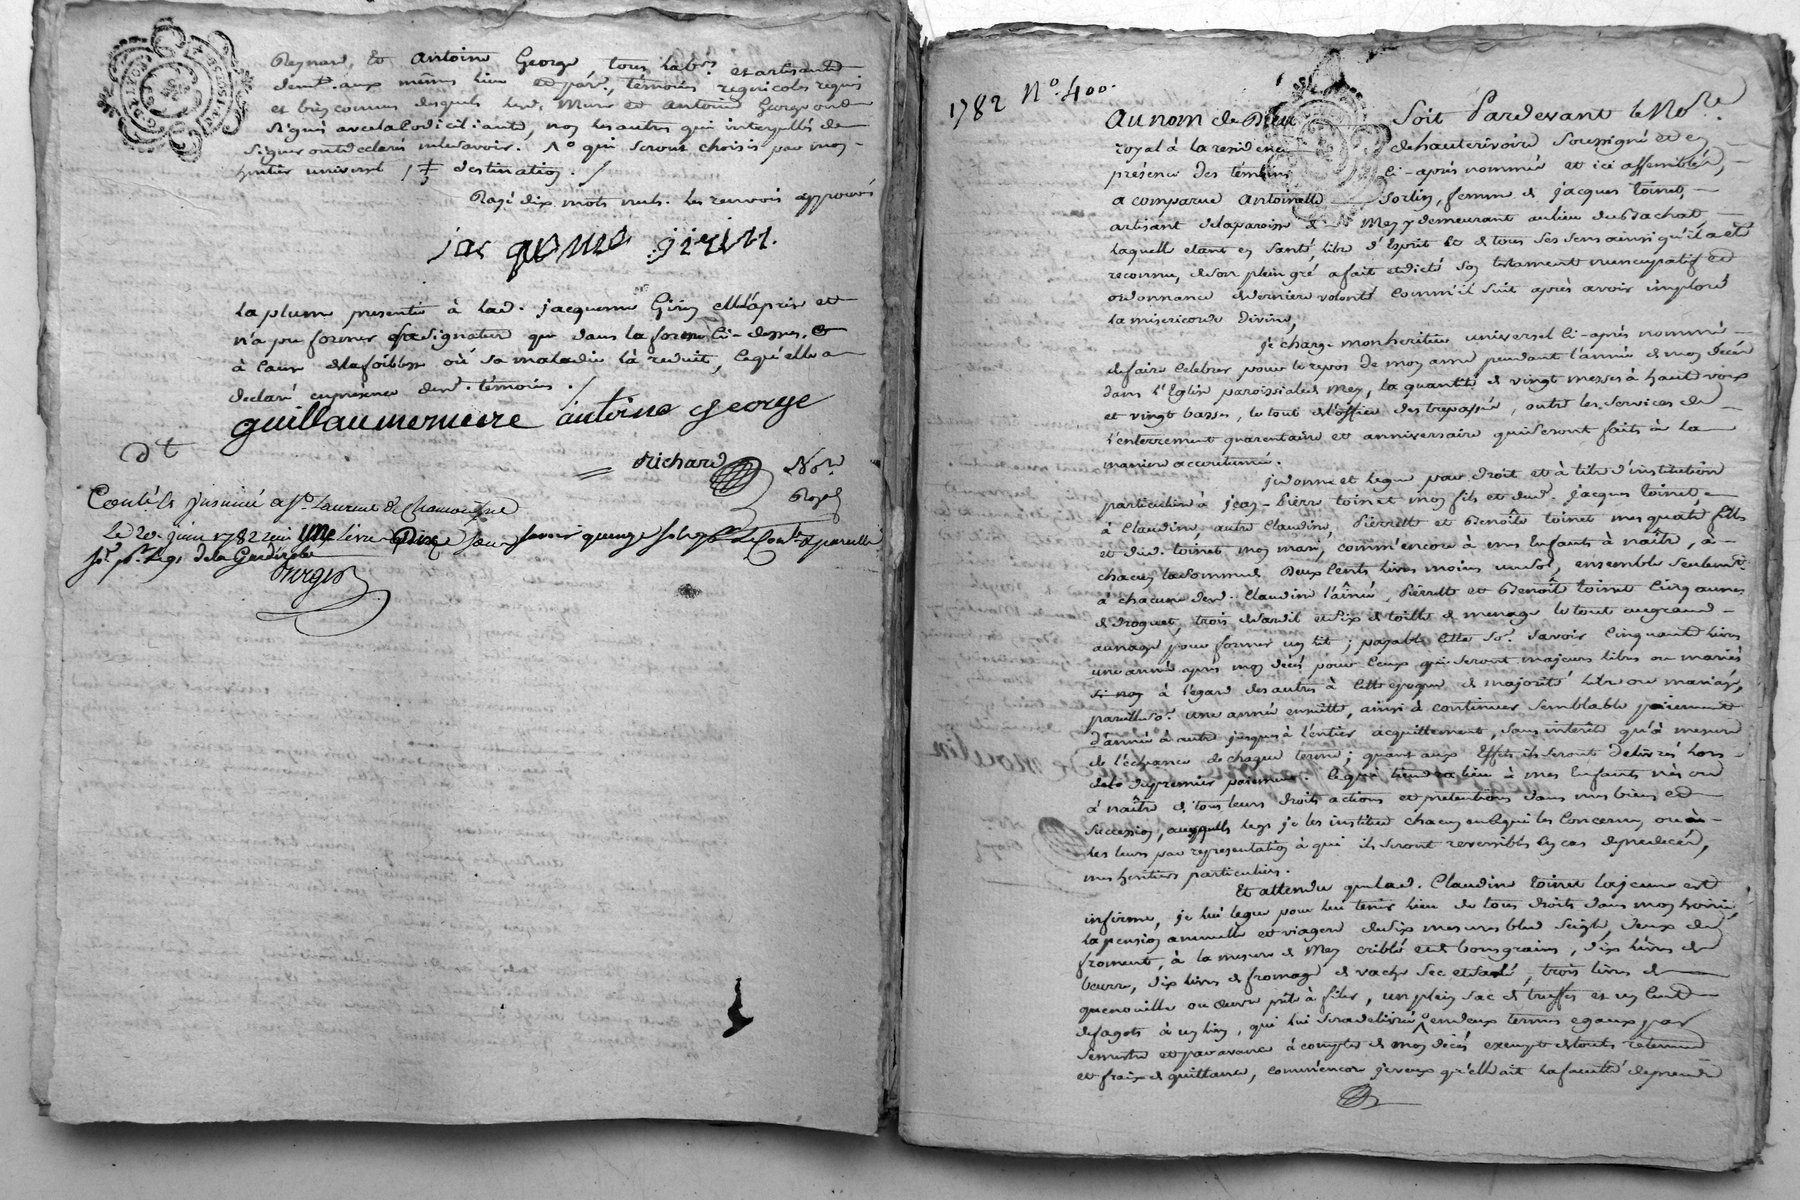 Reynard, et antoine George tous lab.rs et artisants
demt. aux mêmes lieu et par., témoins regnicoles requis
et bien connus desquels lesd. Mure et antoine George ont
signé avec la Codicillante, non les autres qui interpellés de
signer ont declaré ne le savoir. qui seront choisis par mon
heritier universel destination ./
Rayé dix mots nuls. les renvois approuvés
jac qeme girin.
La plume presentée à lad. jacqueme Girin elle a pris et
n'a pu former sa signature que dans la forme ci-dessus, et
à cause de la foiblesse où sa maladie la reduit, ce qu'elle a
declaré en presence desd. témoins ./
guillaume mure antoine george
dt
Richard Nore.
Royal
Contlé. & insinué a St. Laurent de Chamousset
Le 20. juin 1782 reçu une livre dix sous savoir quinze sols pr. le Contle. & pareille
pr. de la Gardirolle
1782 N.o 400.
Au nom de Dieu Soit Pardevant le No.re
royal à la residence de hauterivoire soussigné et en
présence des témoins ci-après nommés et ici assemblés,
a comparue antoinette Sorlin, femme de jacques toinet,
artisant de la paroisse de Mey y demeurant au lieu du Bachat
laquelle etant en santé, libre d'Esprit et de tous ses sens ainsi qu'il a eté
reconnu, de son plein gré a fait et dicté son testament nuncupatif et
ordonnance de derniere volonté comm'il suit après avoir imploré
la misericorde Divine,
je charge mon heritier universel ci-après nommé
de faire celebrer pour le repos de mon ame pendant l'année de mon decès
dans l'Eglise paroissiale de Mey, la quantité de vingt messes à haute voix
et vingt basses, le tout de l'office des trepassés, outre les services de
l'enterrement quarentaine et anniversaire qui seront faits à la
maniere accoutumée.
je donne et legue par droit et à titre d'institution
particuliere à jean-Pierre toinet mon fils et dud. jacques toinet,
à Claudine, autre Claudine, Pierrette et Benoîte toinet mes quatre filles
et dud. toinet mon mari, comm'encore à mes Enfants à naître, à
chacun la somme de Deux cents livres moins un sol, ensemble seulemt.
à chacune desd. Claudine l'aînée, Pierrette et Benoîte toinet cinq aunes
de droguet, trois de sardil et dix de toille de menage le tout au grand
aunage pour former un lit; payable cette so.e savoir cinquante livres
une année après mon decès pour ceux qui seront majeurs libres ou mariés
si non à l'egard des autres à cette epoque de majorité libre ou mariage,
pareille so.e une année ensuitte, ainsi à continuer semblable paiement
d'année à autre jusques à l'entier acquittement, sans interêt qu'à mesure
de l'echeance de chaque terme; quant aux Effets ils seront delivrés lors
du premier paiement. Ce qui tiendra lieu à mes Enfants nés ou
à naître de tous leurs droits actions et pretentions dans mes biens et
succession, auxquels legs je les institue chacun en ce qui les concerne, ou à
les leurs par representation à qui ils seront reversibles en cas de predecès,
mes heritiers particuliers.
Et attendu que lad. Claudine toinet la jeune est
infirme, je lui legue pour lui tenir lieu de tous droits dans mon hoirie,
la pension annuelle et viagere de six mesures bled seigle, deux de
froment, à la mesure de Mey criblé et de bons grains, dix livres de
beurre, dix livres de fromage de vache sec et salé, trois livres de
quenouille ou œuvre prête à filer, un plein sac de truffes et un cent
de fagots à un lien, qui lui sera delivré en deux termes egaux par
semestre et par avance à compter de mon decès exempte de toute retenue
et fraix de quittance, comm'encor je veux qu'elle ait la faculté de prendre